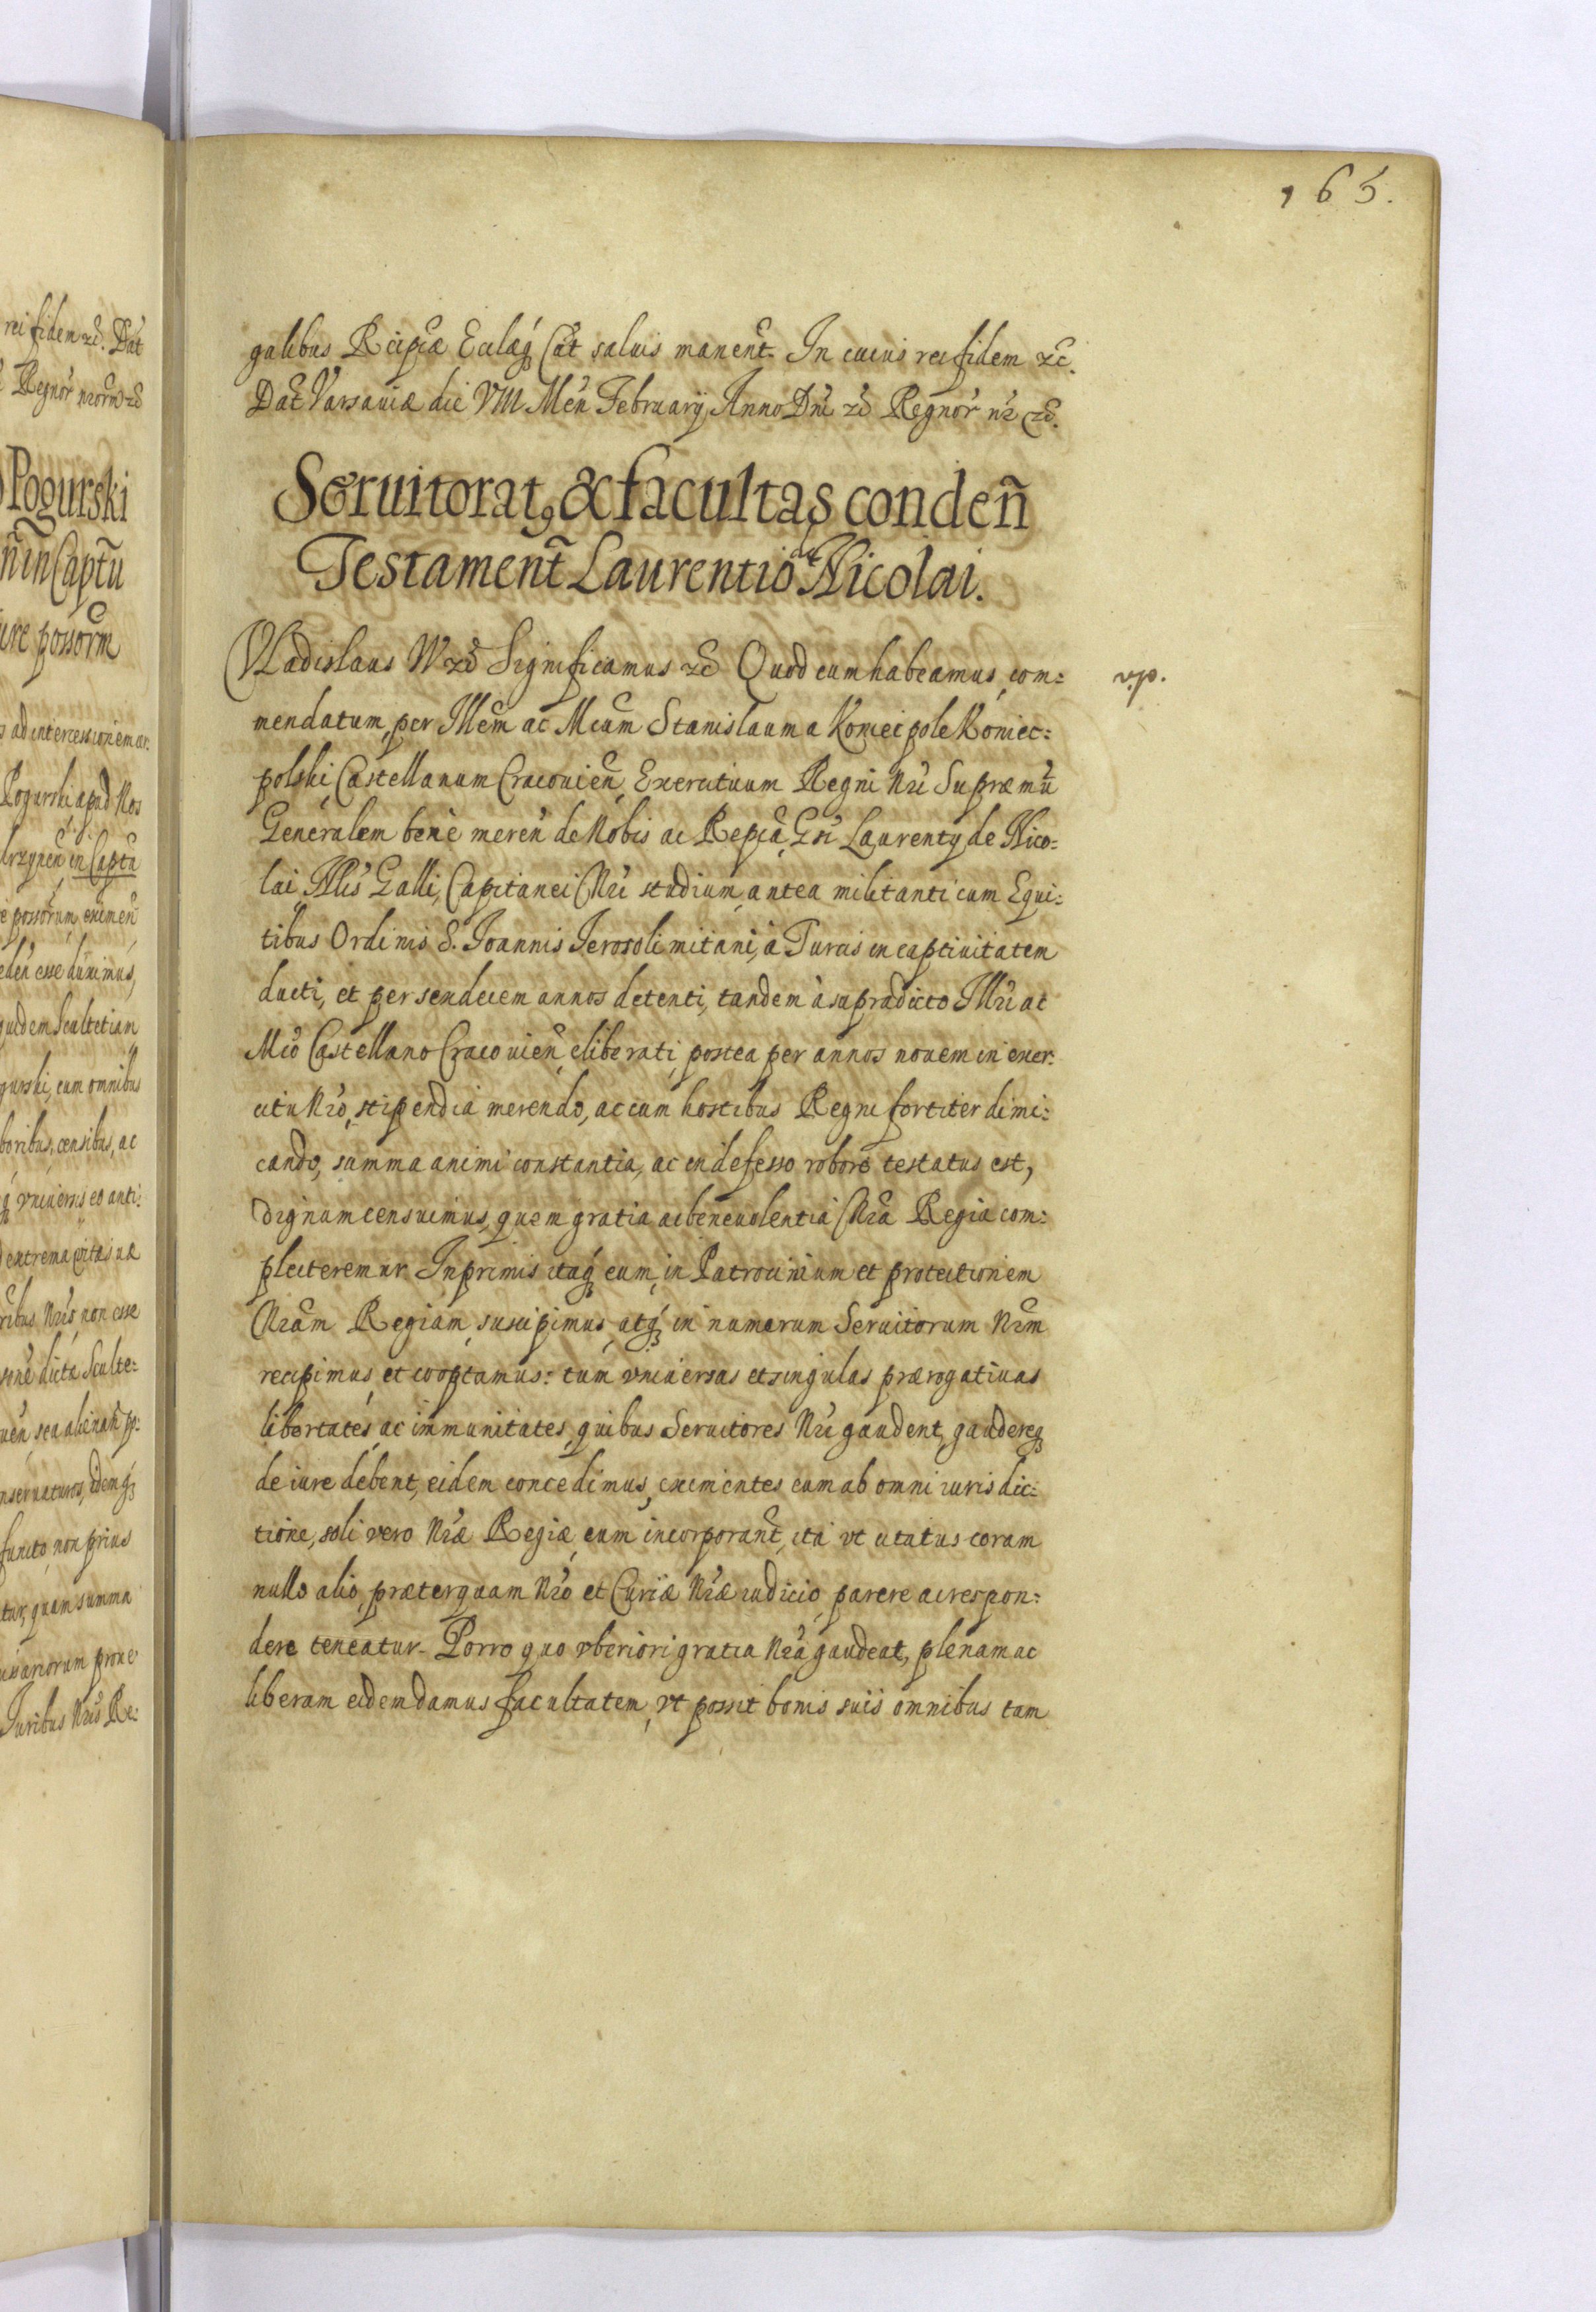 165.
galibus Reipcæ Eccląq́ Cat́ saluis manent̃. In cuius rei fidem ꝛc̃.
Dat̃ Varsauiæ die VIII Meń February Anno Dnĩ ꝛc̃ Regnoŕ nŕ ꝛc̃.
Seruitorat9 & facultas conden̄
Testament̃ Laurentio de Nicolai.
VLadislaus IV ꝛc̃ Significamus ꝛc̃ Quod cum habeamus, com=
vip.
mendatum, per Illem̃ ac Mcum̃ Stanislaum a Koniecpole Koniec:
polski, Castellanum Cracouień, Exercituum Regni Nrĩ Supræmũ
Generalem bene mereń de Nobis ac Repcã, Gsĩ Laurenty de Nico:
lai, Nlis̃ Galli, Capitanei Nrĩ studium, antea militanti cum Equi:
tibus Ordinis S. Joannis Ierosolimitani, à Turcis in captiuitatem
ducti, et per sendecem annos detenti, tandem à supradicto Illrĩ ac
Mcõ Castellano Cracouień eliberati, postea per annos nouem in exer:
citu Nrõ, stipendia merendo, ac cum hostibus Regni fortiter dimi:
cando, summa animi constantia, ac indefesso robore testatus est,
dignum censuimus, quem gratia ac beneuolentia Nrã Regia com:
plecteremur. Inprimis itaq́ eum, in Patrocinium et protectionem
Nrãm Regiam, suscipimus, atq́ in numerum Seruitorum Nrm̃
recipimus, et cooptamus: tum vniuersas et singulas prærogatiuas
libertates, ac immunitates, quibus Seruitores Nrĩ gaudent, gaudereq́
de iure debent, eidem concedimus, eximentes eum ab omni iurisdic:
tione, soli vero Nræ̃ Regiæ, eum incorporant̃, ita vt citatus coram
nullo alio, præterquam Nrõ et Curiæ Nræ̃ iudicio, parere ac respon:
dere teneatur. Porro quo vberiori gratia Nrã gaudeat, plenam ac
liberam eidem damus facultatem, vt possit bonis suis omnibus tam
rei fidem ꝛc̃. Dat́
Regnoŕ nrorm̃ ꝛc̃
Pogurski
in Captũ
possorm̃
ad intercessionem
Pogurski, apud Nos
in Captũ
possorum, eximeń
esse duximus,
quidem Scultetiam
cum omnibus
censibus, ac
vniuersis eo anti:
extrema vitæ suæ
Nrĩs non esse
dictæ Sculte:
seu alienań
non prius
quam summa
Iuribus Nrĩs Re: